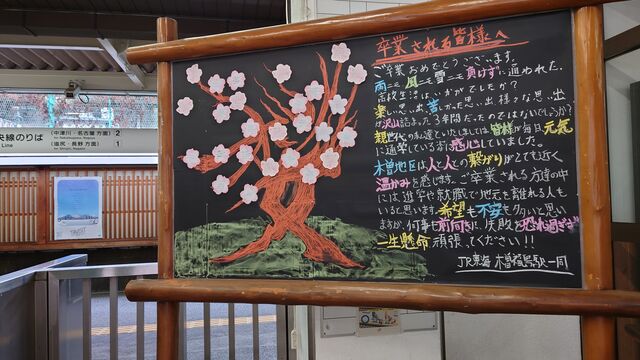 卒業される皆様へ
ご卒業おめでとうございます。
雨ニモ風ニモ雪ニモ負けずに通われた、
高校生活はいかがでしたか?
楽しい思い出、苦かった思い出様々な思い出
が沢山詰まった3年間だったのではないでしょうか?
親世代の私達といたしましては皆様が毎日元気
に通学している姿に感心していました。
木曽地区は人と人との繋がりがとても近く
温かみを感じます。ご卒業される方達の中
には、進学や就職で地元を離れる人も
いると思います。希望も不安も多いと思い
ますが、何事も前向きに、失敗を恐れ過ぎず
一生懸命頑張ってください!!
JR東海 木曽福島駅一同
央線のりば
(中津川・名古屋 方面) 2
(塩尻・長野 方面) 1